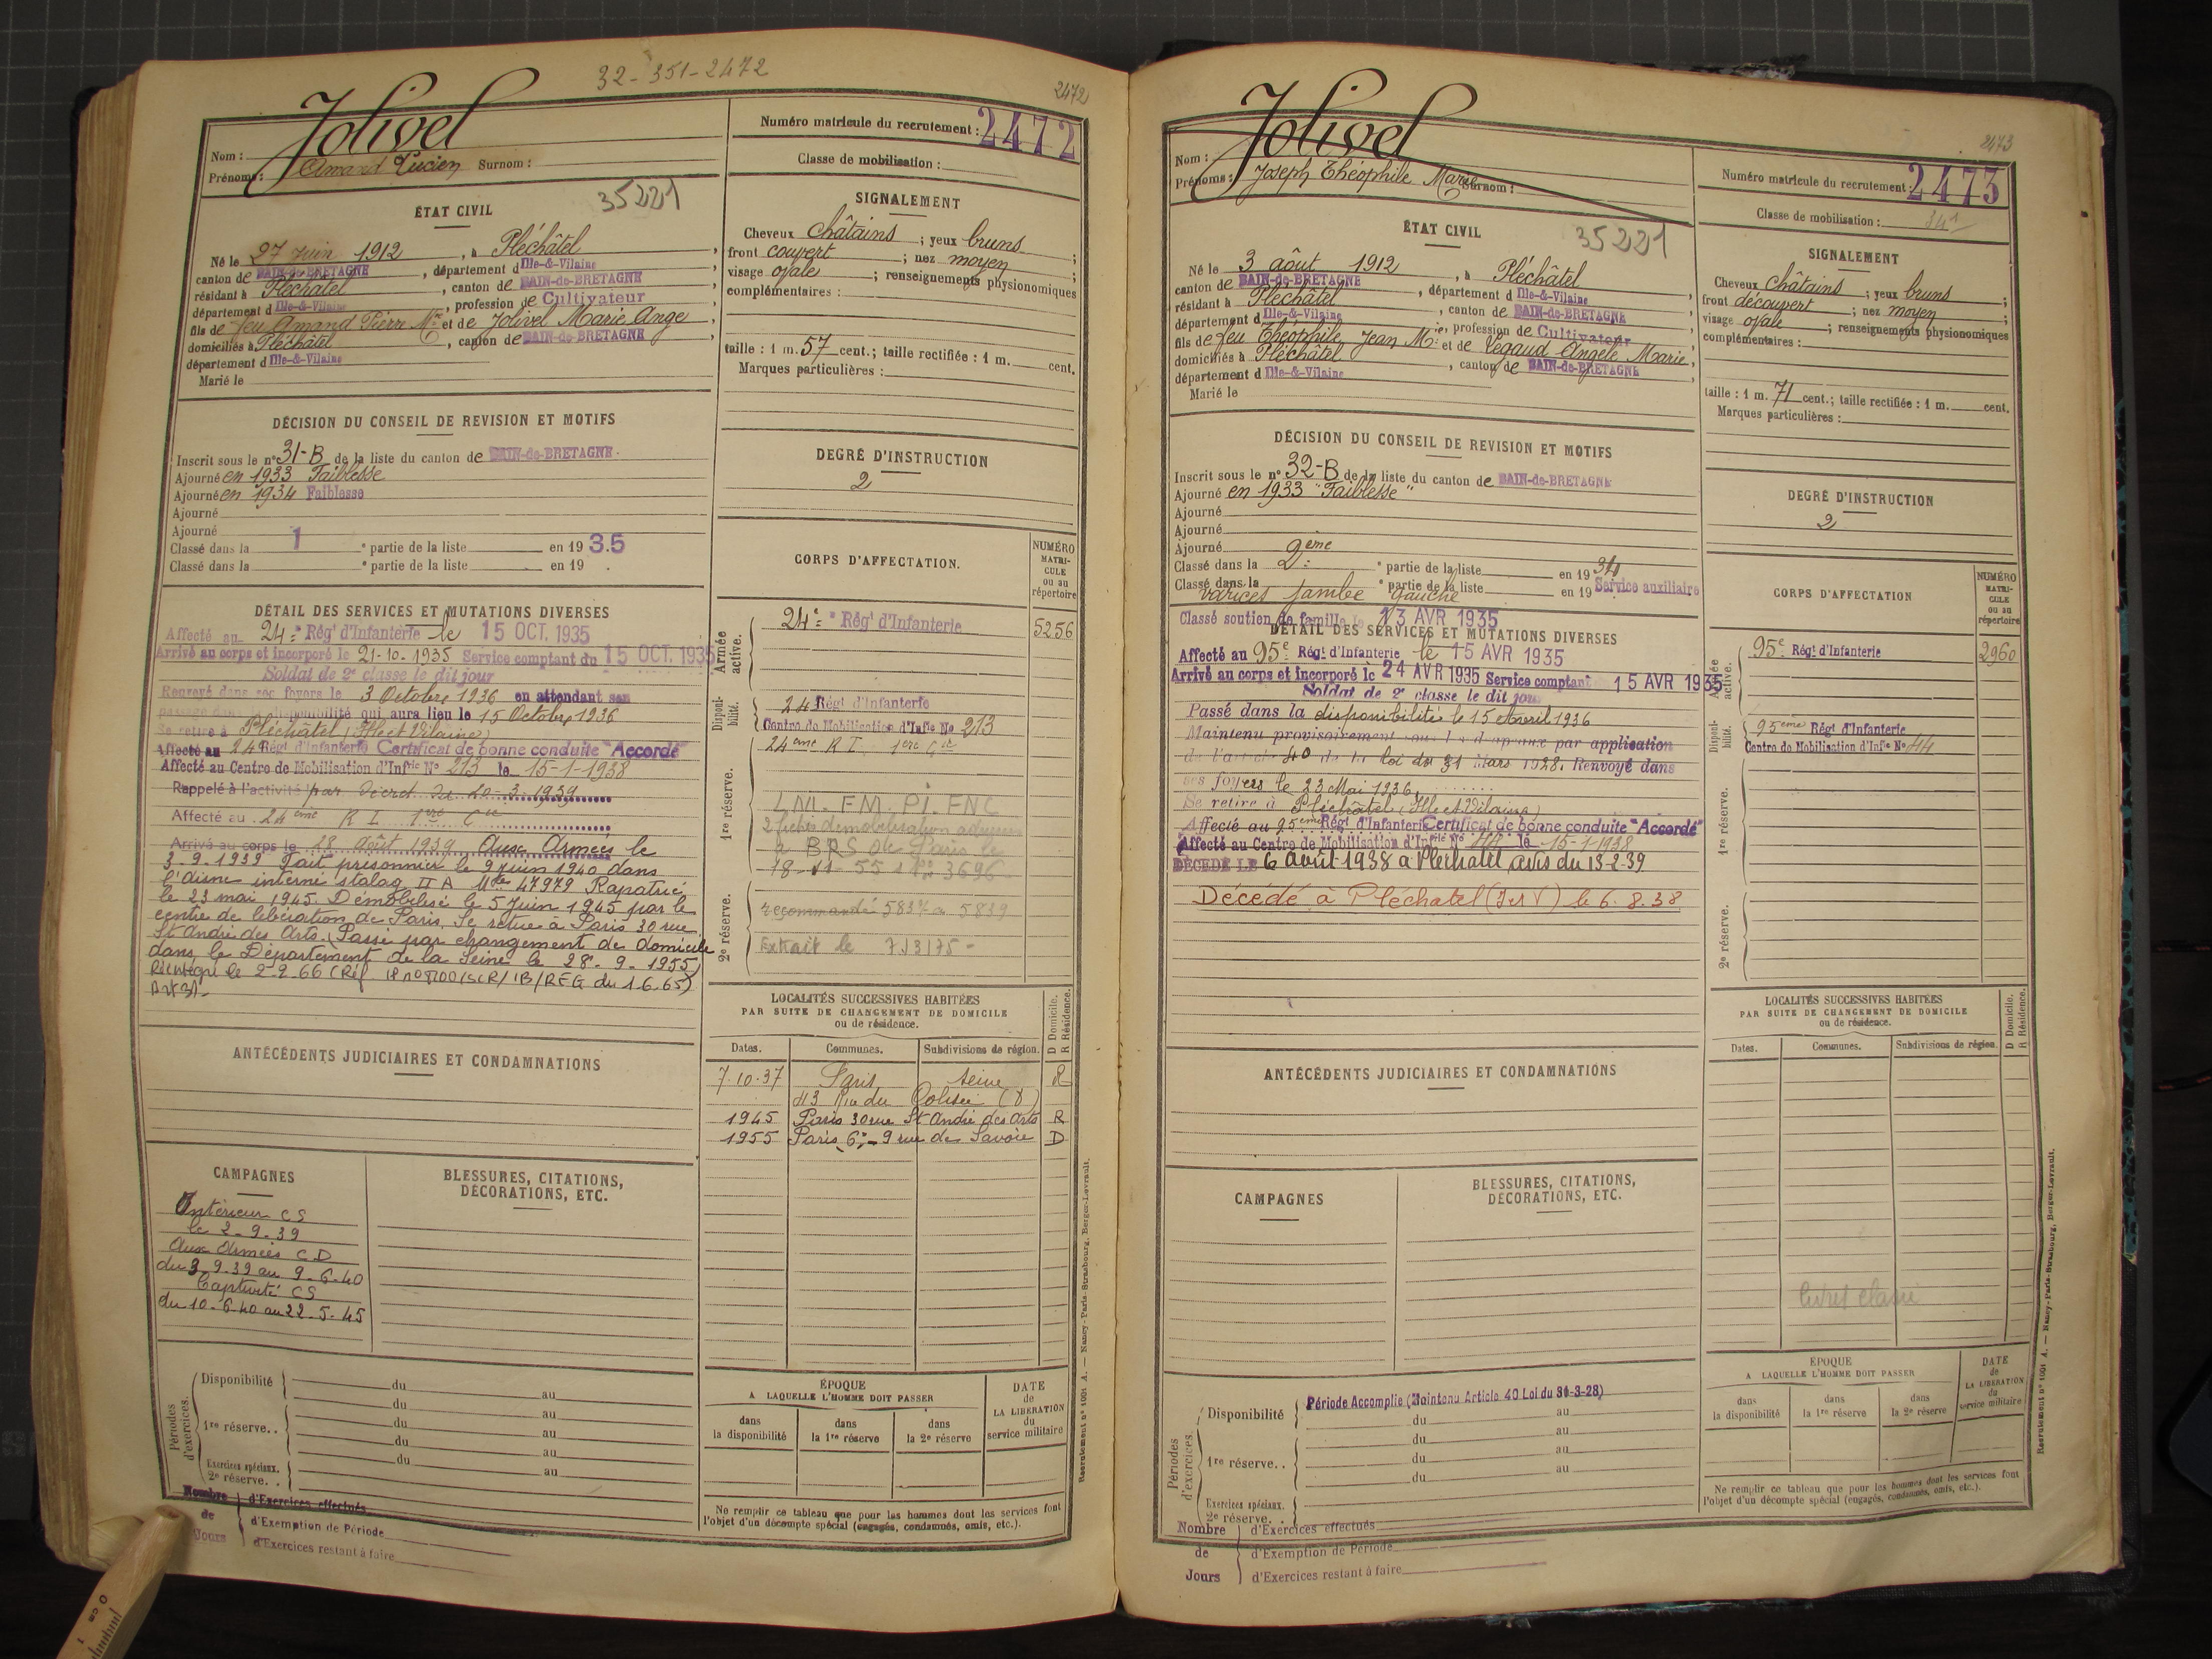 32-351-2472
2472
Nom : Jolivel
Prénoms : Amand Lucien Surnom :
Numéro matricule du recrutement : 2472
Classe de mobilisation :
35221
ÉTAT CIVIL
Né le 27 Juin 1912, à Pléchâtel,
canton de BAIN-de-BRETAGNE, département d Ille-&-Vilaine
résidant à Pléchâtel, canton de BAIN-de-BRETAGNE,
département d Ille-&-Vilaine, profession de Cultivateur
fils de feu Amand Pierre Mie et de Jolivel Marie Ange,
domiciliés à Pléchâtel, canton de BAIN-de-BRETAGNE,
département d Ille-&-Vilaine
Marié le
SIGNALEMENT
Cheveux châtains ; yeux bruns ;
front couvert ; nez moyen ;
visage ovale ; renseignements physionomiques
complémentaires :
taille : 1 m. 57 cent.; taille rectifiée : 1 m. cent.
Marques particulières :
DÉCISION DU CONSEIL DE REVISION ET MOTIFS
Inscrit sous le n° 31-B de la liste du canton de BAIN-de-BRETAGNE.
Ajourné en 1933 Faiblesse
Ajourné en 1934 Faiblesse
Ajourné
Ajourné
Classé dans la 1 e partie de la liste en 1935
Classé dans la e partie de la liste en 19 .
DEGRÉ D'INSTRUCTION
2
DÉTAIL DES SERVICES ET MUTATIONS DIVERSES
Affecté au 24e Régt d'Infanterie le 15 OCT. 1935
Arrivé au corps et incorporé le 21-10-1935 Service comptant du 15 OCT. 1935
Soldat de 2e classe le dit jour
Renvoyé dans ses foyers le 3 Octobre 1936 en attendant son
passage dans la disponibilité qui aura lieu le 15 Octobre 1936
Se retire à Pléchâtel (Ille et Vilaine)
Affecté au 24 Régt d'Infanterie Certificat de bonne conduite "Accordé"
Affecté au Centre de Mobilisation d'Infrie No 213 le 15-1-1938
Rappelé à l'activité par décret du 20-3-1939
Affecté au 24ème R I 1ère Cie
Arrivé au corps le 28 août 1939 Aux Armées le
3.9.1939 Fait prisonnier le 9 juin 1940 dans
l'aisne interné stalag II A Mle 47979 Rapatrié
le 23 mai 1945. Démobilisé le 5 Juin 1945 par le
centre de libération de Paris. Se retire à Paris 30 rue
St André des Arts. (Passé par changement de domicile
dans le Département de la Seine le 28-9-1955)
Réintégré le 2-2-66 (Réf 18 n° 8100/SCR/1B/REG du 1.6.65)
Art 31-
CORPS D'AFFECTATION.
NUMÉRO MATRI-CULE ou au répertoire
Armée active.
24e Régt d'Infanterie 5256
Disponi-bilité.
24 Régt d'Infanterie
Centre de Mobilisation d'Infie No 213
1re réserve.
24ème R I 1ère Cie
LM. FM. PI. ENC
2 fiches démobilisation
a BRS de Paris le
18-11-55 3696
2e réserve.
recommandé 5837 a 5839
Extrait le 713175-
ANTÉCÉDENTS JUDICIAIRES ET CONDAMNATIONS
LOCALITÉS SUCCESSIVES HABITÉES
PAR SUITE DE CHANGEMENT DE DOMICILE
ou de résidence.
D Domicile.
R Résidence.
Dates. Communes. Subdivisions de région.
7.10.37 Paris Seine R
43 Rue du Colisée (8)
1945 Paris 30 rue St André des Arts R
1955 Paris 6e - 9 rue de Savoie D
CAMPAGNES
Intérieur CS
le 2-9-39
Aux Armées C D
du 3.9.39 au 9-6-40
Captivité CS
du 10-6-40 au 22-5-45
BLESSURES, CITATIONS,
DÉCORATIONS, ETC.
Périodes d'exercices.
Disponibilité du au
du au
1re réserve. . du au
du au
Exercices spéciaux. du au
2e réserve. .
Nombre de Jours
d'Exercices effectués
d'Exemption de Période
d'Exercices restant à faire
ÉPOQUE
A LAQUELLE L'HOMME DOIT PASSER
dans la disponibilité
dans la 1re réserve
dans la 2e réserve
DATE de LA LIBÉRATION du service militaire
Ne remplir ce tableau que pour les hommes dont les services font
l'objet d'un décompte spécial (engagés, condamnés, omis, etc.).
Recrutement n° 1001 A. — Nancy-Paris-Strasbourg, Berger-Levrault.
2473
Nom : Jolivel
Prénoms : Joseph Théophile Marie Surnom :
Numéro matricule du recrutement : 2473
Classe de mobilisation : 34/1
35221
ÉTAT CIVIL
Né le 3 août 1912, à Pléchâtel
canton de BAIN-de-BRETAGNE, département d Ille-&-Vilaine
résidant à Pléchâtel, canton de BAIN-de-BRETAGNE
département d Ille-&-Vilaine, profession de Cultivateur
fils de feu Théophile Jean Mie et de Legaud Angèle Marie,
domiciliés à Pléchâtel, canton de BAIN-de-BRETAGNE,
département d Ille-&-Vilaine
Marié le
SIGNALEMENT
Cheveux châtains ; yeux bruns ;
front découvert ; nez moyen ;
visage ovale ; renseignements physionomiques
complémentaires :
taille : 1 m. 71 cent.; taille rectifiée : 1 m. cent.
Marques particulières :
DÉCISION DU CONSEIL DE REVISION ET MOTIFS
Inscrit sous le n° 32-B de la liste du canton de BAIN-de-BRETAGNE
Ajourné en 1933 "Faiblesse"
Ajourné
Ajourné
Ajourné
Classé dans la 2ème e partie de la liste en 1934
Classé dans la e partie de la liste en 19 Service auxiliaire
varices jambe gauche
Classé soutien de famille le 13 AVR 1935
DEGRÉ D'INSTRUCTION
2
DÉTAIL DES SERVICES ET MUTATIONS DIVERSES
Affecté au 95e Régt d'Infanterie le 15 AVR 1935
Arrivé au corps et incorporé le 24 AVR 1935 Service comptant 15 AVR 1935
Soldat de 2e classe le dit jour
Passé dans la disponibilité le 15 Avril 1936
Maintenu provisoirement sous les drapeaux par application
de l'article 40 de la loi du 31 Mars 1928. Renvoyé dans
ses foyers le 23 Mai 1936.
Se retire à Pléchâtel (Ille et Vilaine)
Affecté au 95ème Régt d'Infanterie Certificat de bonne conduite "Accordé"
Affecté au Centre de Mobilisation d'Infrie No 44 le 15-1-1938
DÉCÉDÉ LE 6 août 1938 à Pléchatel avis du 13.2.39
Décédé à Pléchatel (I et V) le 6.8.38
CORPS D'AFFECTATION
NUMÉRO MATRI-CULE ou au répertoire
Armée active.
95e Régt d'Infanterie 2960
Disponi-bilité.
95ème Régt d'Infanterie
Centre de Mobilisation d'Infie No 44
1re réserve.
2e réserve.
ANTÉCÉDENTS JUDICIAIRES ET CONDAMNATIONS
LOCALITÉS SUCCESSIVES HABITÉES
PAR SUITE DE CHANGEMENT DE DOMICILE
ou de résidence.
D Domicile.
R Résidence.
Dates. Communes. Subdivisions de région.
livret classé
CAMPAGNES
BLESSURES, CITATIONS,
DÉCORATIONS, ETC.
Périodes d'exercices
Période Accomplie (Maintenu Article 40 Loi du 31-3-28)
Disponibilité du au
du au
1re réserve. . du au
du au
Exercices spéciaux.
2e réserve. .
Nombre de Jours
d'Exercices effectués
d'Exemption de Période
d'Exercices restant à faire
ÉPOQUE
A LAQUELLE L'HOMME DOIT PASSER
dans la disponibilité
dans la 1re réserve
dans la 2e réserve
DATE de LA LIBÉRATION du service militaire
Ne remplir ce tableau que pour les hommes dont les services font
l'objet d'un décompte spécial (engagés, condamnés, omis, etc.).
Recrutement n° 1001 A. — Nancy-Paris-Strasbourg, Berger-Levrault.
0 cm 1